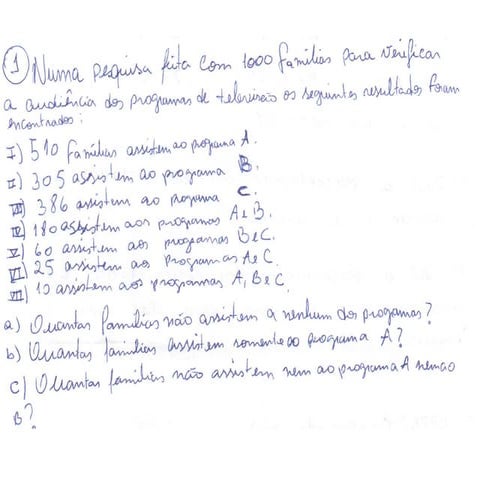 1 Numa pesquisa feita com 1000 famílias para verificar
a audiência dos programas de televisão os seguintes resultados foram
encontrados:
I) 510 famílias assistem ao programa A.
II) 305 assistem ao programa B.
III) 386 assistem ao programa C.
IV) 180 assistem aos programas A e B.
V) 60 assistem aos programas B e C.
VI) 25 assistem aos programas A e C.
VII) 10 assistem aos programas A, B e C.
a) Quantas famílias não assistem a nenhum dos programas?
b) Quantas famílias assistem somente ao programa A?
c) Quantas famílias não assistem nem ao programa A nem ao
B?